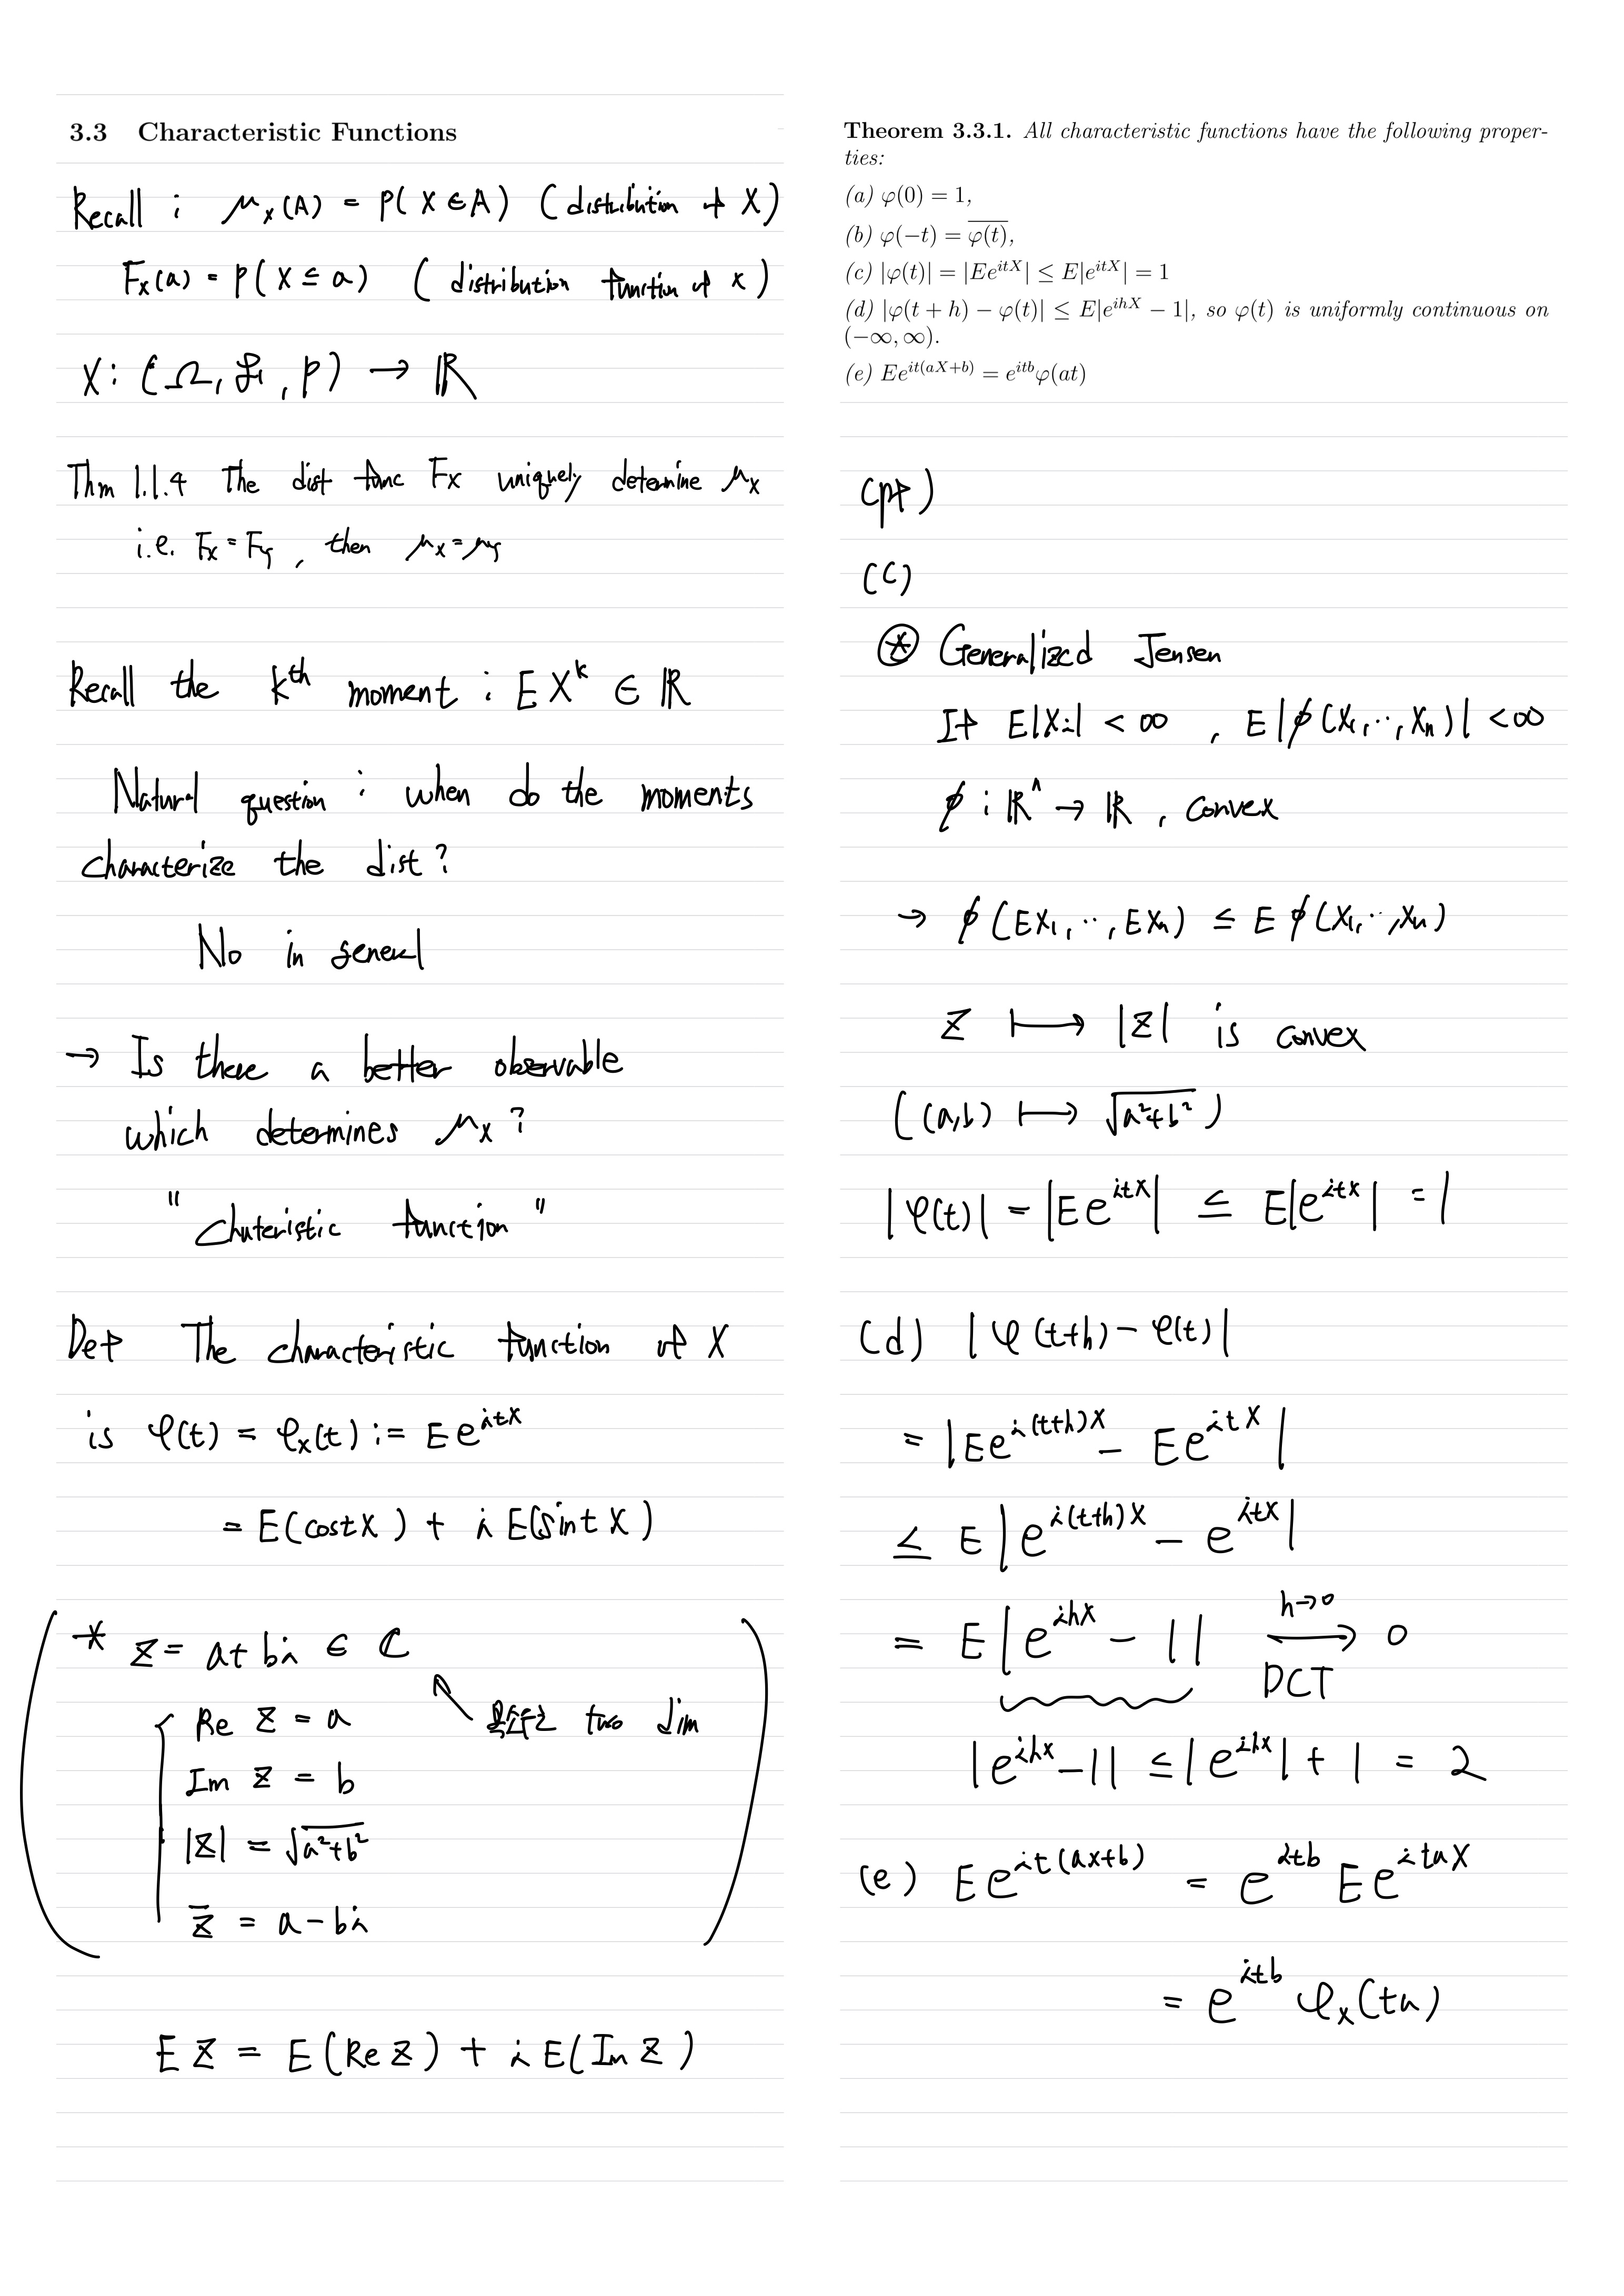 3.3 Characteristic Functions
Recall : μ_X(A) = P(X ∈ A) (distribution of X)
F_X(a) = P(X ≤ a) (distribution function of X)
X : (Ω, ℱ, P) → ℝ
Thm 1.1.4 The dist func F_X uniquely determine μ_X
i.e. F_X = F_Y , then μ_X = μ_Y
Recall the k^th moment : E X^k ∈ ℝ
Natural question : when do the moments
characterize the dist?
No in general
→ Is there a better observable
which determines μ_X ?
"Chateristic function"
Def The characteristic function of X
is φ(t) = φ_X(t) := E e^{itX}
= E(cos tX) + i E(sin tX)
* Z = a + bi ∈ ℂ
Re Z = a
two dim
Im Z = b
|Z| = √(a²+b²)
Z̄ = a - bi
E Z = E(Re Z) + i E(Im Z)
Theorem 3.3.1. All characteristic functions have the following proper-
ties:
(a) φ(0) = 1,
(b) φ(−t) = \overline{φ(t)},
(c) |φ(t)| = |Ee^{itX}| ≤ E|e^{itX}| = 1
(d) |φ(t + h) − φ(t)| ≤ E|e^{ihX} − 1|, so φ(t) is uniformly continuous on
(−∞, ∞).
(e) Ee^{it(aX+b)} = e^{itb}φ(at)
(pf)
(c)
⊛ Generalized Jensen
If E|X_i| < ∞ , E|φ(X_1, ⋯, X_n)| < ∞
φ : ℝ^n → ℝ , convex
→ φ(EX_1, ⋯, EX_n) ≤ E φ(X_1, ⋯, X_n)
Z ↦ |Z| is convex
((a,b) ↦ √(a²+b²))
|φ(t)| = |E e^{itX}| ≤ E|e^{itX}| = 1
(d) |φ(t+h) − φ(t)|
= |E e^{i(t+h)X} − E e^{itX}|
≤ E|e^{i(t+h)X} − e^{itX}|
= E|e^{ihX} − 1| h→0 ⟶ DCT 0
|e^{ihX} − 1| ≤ |e^{ihX}| + 1 = 2
(e) E e^{it(aX+b)} = e^{itb} E e^{itaX}
= e^{itb} φ_X(ta)